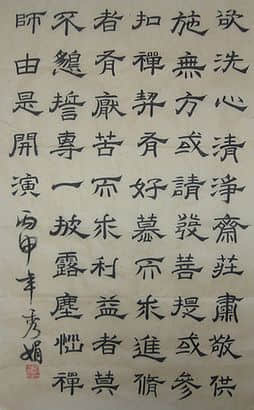 欲洗心清淨齋莊肅敬供
施無方或請發菩提或參
扣禪契有好慕而求進脩
者有厭苦而求利益者莫
不懇誓專一披露塵惱禪
師由是開演丙申年秀娟